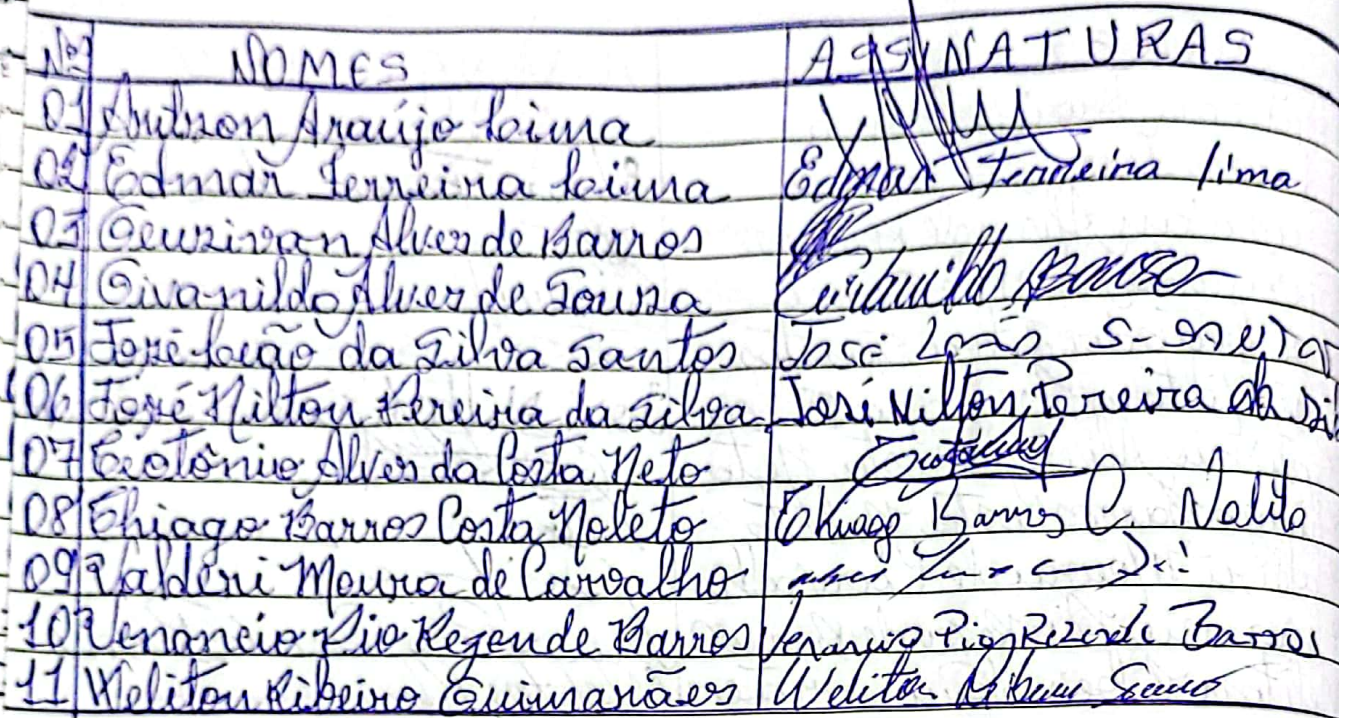 Nº NOMES ASSINATURAS
01 Araújo Lima
02 Edmar Ferreira Lima Edmar Ferreira lima
03 Geurivan Alves de Barros
04 Givanildo Alves de Souza
05 José Leão da Silva Santos José
06 José Nilton Pereira da Silva José Nilton Pereira da Sil
07 Teotônio Alves da Costa Neto
08 Thiago Barros Costa Noleto Thiago Barros C. Nolito
09 Valderi Moura de Carvalho
10 Venancio Pio Rezende Barros Venancio Pio Rezende Barros
11 Weliton Ribeiro Guimarães Weliton